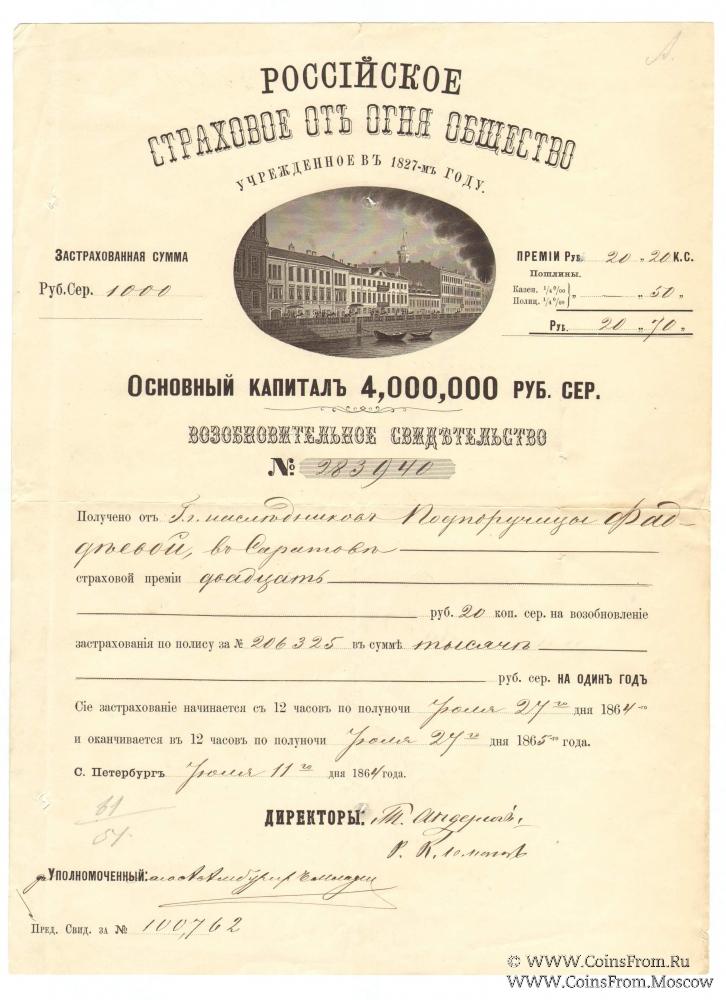 РОССІЙСКОЕ
СТРАХОВОЕ ОТЪ ОГНЯ ОБЩЕСТВО
УЧРЕЖДЕННОЕ ВЪ 1827-мъ ГОДУ.
ЗАСТРАХОВАННАЯ СУММА
Руб.Сер. 1000
ПРЕМІИ РУБ. 20 „ 20 К.С.
Пошлины.
Казен. 1/4 0/00
Полиц. 1/4 0/00 } „ — „ 50 „
Руб. 20 „ 70 „
ОСНОВНЫЙ КАПИТАЛЪ 4,000,000 РУБ. СЕР.
ВОЗОБНОВИТЕЛЬНОЕ СВИДѢТЕЛЬСТВО
№ 283940
Получено отъ Гг. наслѣдниковъ Подпоручицы Фад-
дѣевой, въ Саратовѣ
страховой преміи двадцать
руб. 20 коп. сер. на возобновленіе
застрахованія по полису за № 206325 въ суммѣ тысячи
руб. сер. НА ОДИНЪ ГОДЪ
Сіе застрахованіе начинается съ 12 часовъ по полуночи Іюля 27го дня 1864-го
и оканчивается въ 12 часовъ по полуночи Іюля 27го дня 1865-го года.
С. Петербургъ Іюля 11го дня 1864 года.
61
51
ДИРЕКТОРЫ:
УПОЛНОМОЧЕННЫЙ:
ПРЕД. СВИД. ЗА № 100,762
© WWW.CoinsFrom.Ru
WWW.CoinsFrom.Moscow